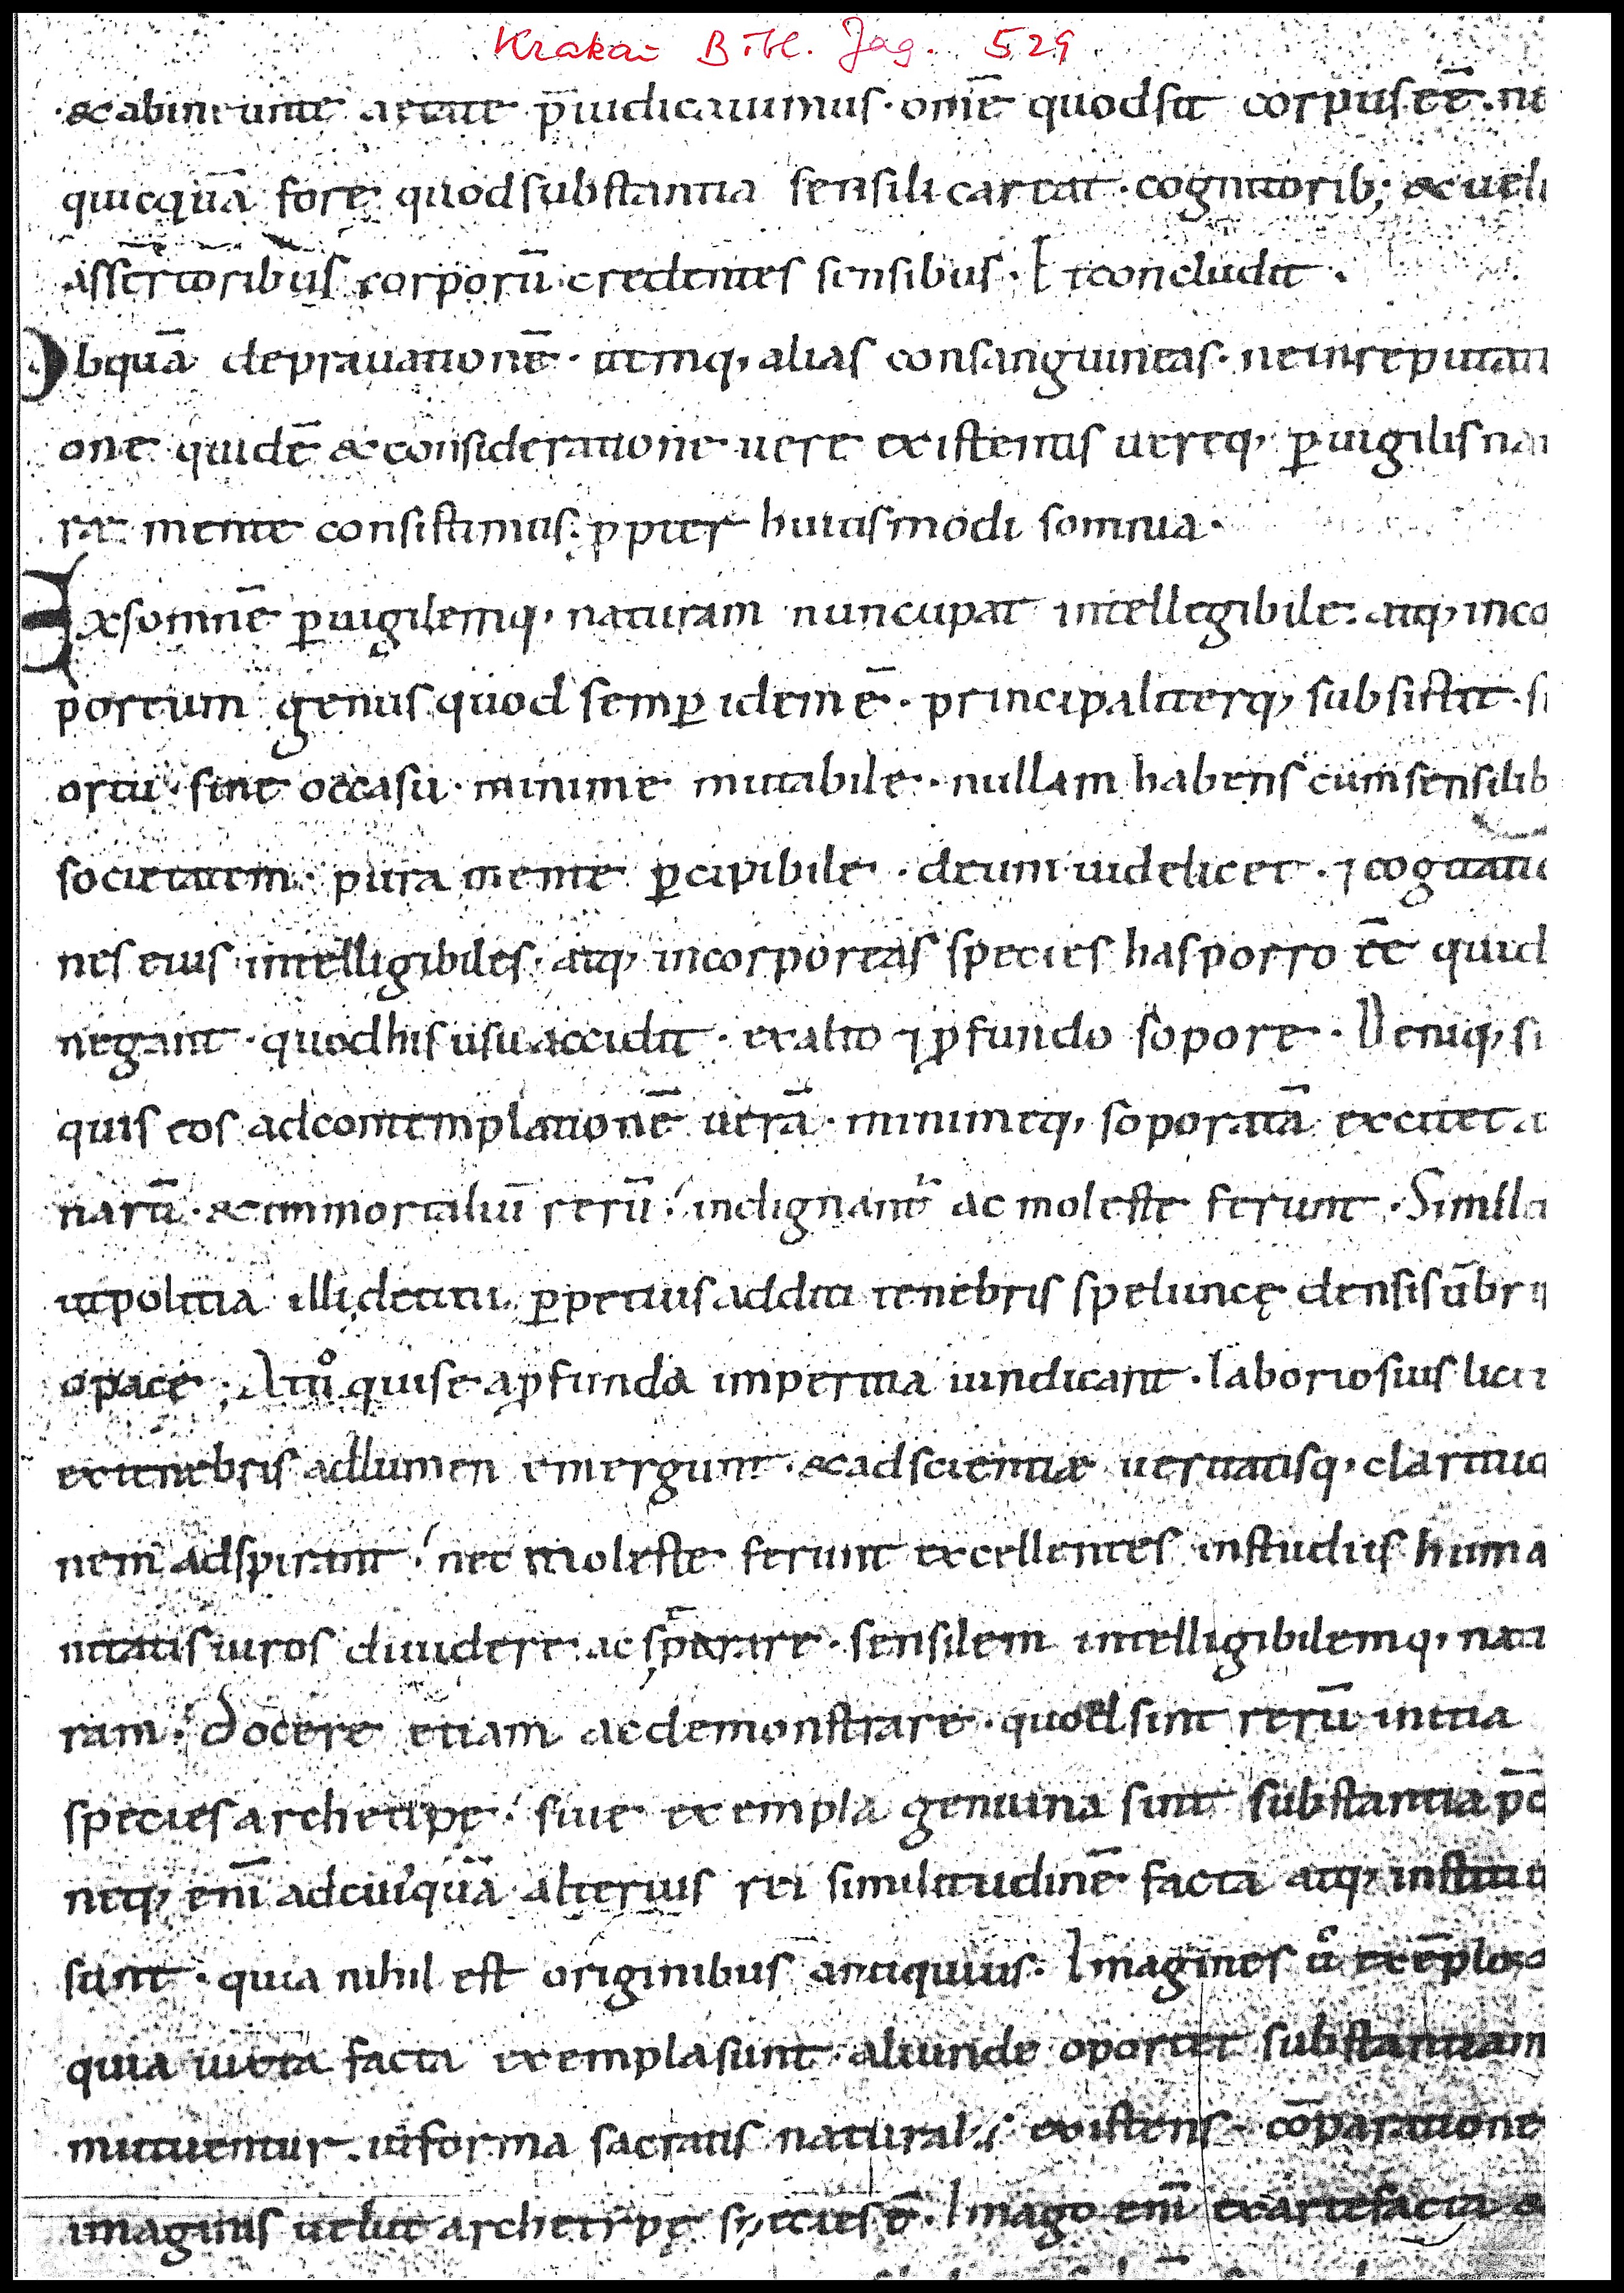 Krakau Bibl. Jag. 529
·& abineunte aetate p̄iudicauimus · om̄e quodsit corpus eē · ne
quicquā fore quodsubstantia sensili careat · cognitorib; & uel
assertoribus corporū credentes sensibus · Et concludit ·
Ob quā deprauationē · itemq, alias consanguineas · ne inreputati
one quidē & consideratione uere existentis uereq, ꝑuigilis na
rae mente consistimus · ꝓpter huiusmodi somnia ·
Exsomnē ꝑuigilemq, naturam nuncupat intellegibile · atq, inco
poreum genus quod semꝑ idem ē · principaliterq, subsistit · si
ortu · sine occasu · minime mutabile · nullam habens cum sensilib
societatem · pura mente ꝑcipibile · deum uidelicet · ⁊ cogitatio
nes eius intelligibiles · atq, incorporeas species has porro eē quid
negant · quodhis usu accidit · exalto ⁊ ꝓfundo sopore · Deniq, si
quis eos adcontemplationē uerā · minimeq, soporatā excitet
narū · & immortaliū rerū · indignant᷑ ac moleste ferunt · Simil
utpolitia illi dediti ꝑpetuis additi tenebris speluncę densis ūbr
opacę · At uº qui se aꝓfunda imperitia uindicant · laboriosius lice
extenebris adlumen emergunt · & ad scientiae ueritatisq, claritu
nem adspirant · nec moleste ferunt excellentes instudiis huma
nitatis uiros diuidere ac separare · sensilem intelligibilemq, natu
ram · docere etiam ac demonstrare · quod sint rerū initia
species archetipę · siue exempla genuina sint substantia p̄d
neq, enī adcuiusquā alterius rei similitudinē facta atq, institu
sunt · quia nihil est originibus antiquius · Imagines uº exēplo
quia iuxta facta exempla sunt · aliunde oportet substantiam
mutuentur · ut forma sacratis naturalis existens · cōparatione
imaginis uelut archetipę species ē · Imago enī exarte facta &